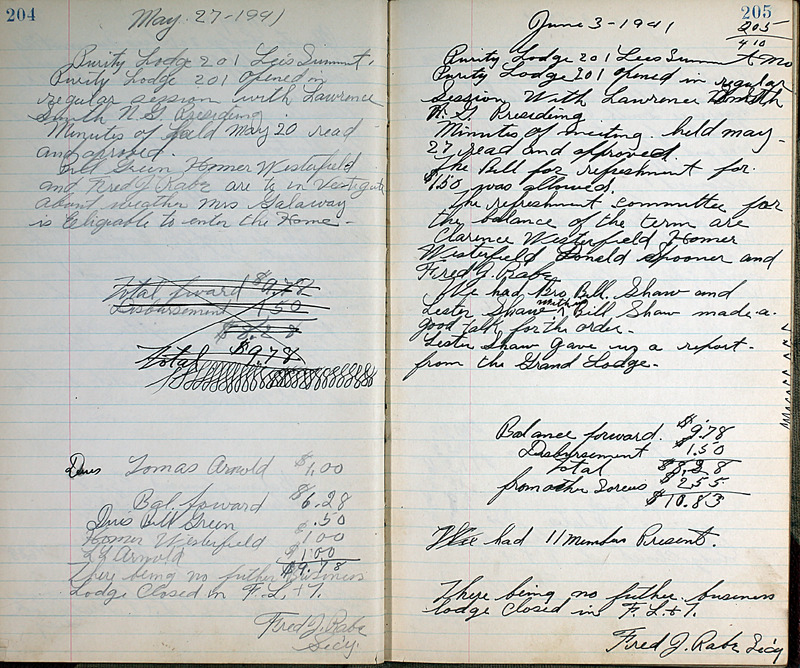 204
May. 27-1941
Purity Lodge 201 Lee's Summit.
Purity Lodge 201 opened in
regular session with Lawrence
Smith N.G. Presiding
Minutes of held May 20 read
and aproved.
Bill Green Homer Westerfield
and Fred J. Rabe are to in vestigate
about weather Mrs Galaway
is Eligiable to enter the Home-
Total forward $9.78
Disbursement 1.50
$8.28
Total $9.78
Dues Tomas Arnold $1.00
Bal. forward $6.28
Dues Bill Green $.50
Homer Westerfield 1.00
Arnold $1.00
$9.78
There being no futher business
Lodge Closed in F. L. + T.
Fred J. Rabe
Secy.
205
June 3-1941
205
410
Purity Lodge 201 Lees Summit Mo
Purity Lodge 201 opened in regular
Session With Lawrence Smith
N. G. Presiding
Minutes of meeting. held may-
27 read and approved.
The Bill for refreshment for.
$1.50 was allowed.
The refreshment committee for
the balance of the term are
Clarence Westerfield Homer
Westerfield Donald Spooner and
Fred J. Rabe
We had Bro Bill. Shaw and
Lester Shaw with us Bill Shaw made-a-
good talk for the order-
Lester Shaw gave us a report-
from the Grand Lodge-
Balance forward. $9.78
Disbursement $1.50
Total $8.28
from other Sorces $2.55
$10.83
We had 11 member Present.
There being no futher business
lodge closed in F. L. + T.
Fred J. Rabe Sec'y